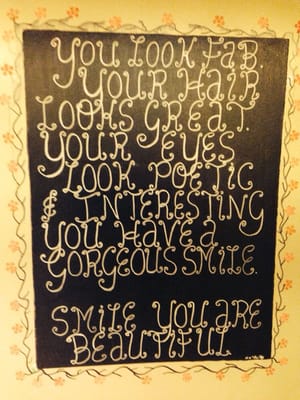 YOU LOOK FAB.
YOUR HAIR
LOOKS GREAT.
YOUR EYES
LOOK POETIC
& INTERESTING
YOU HAVE A
GORGEOUS SMILE.
SMILE YOU ARE
BEAUTIFUL